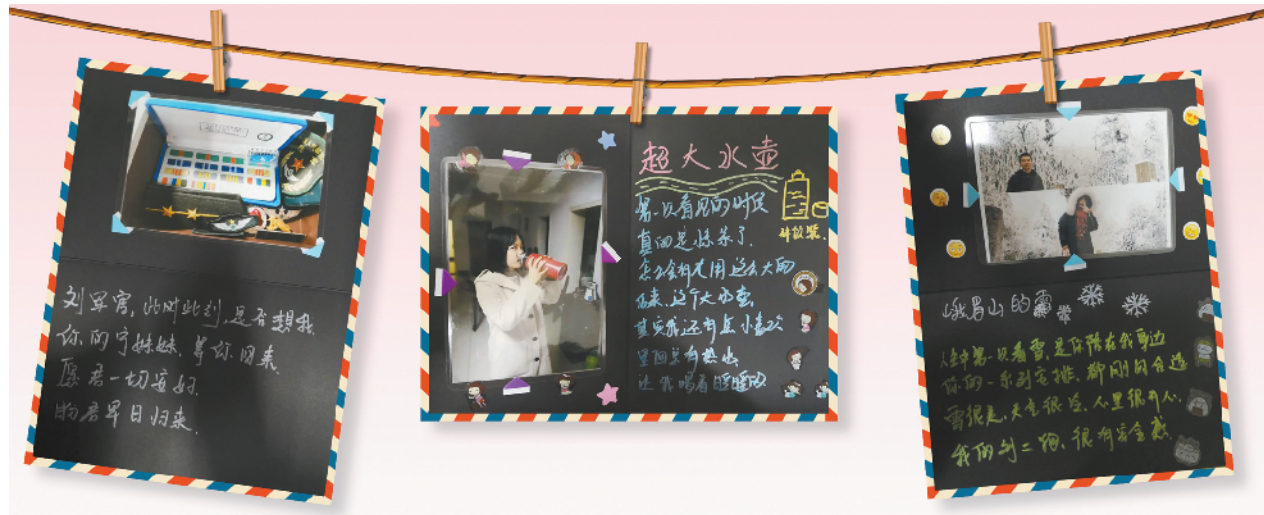 刘军官，此时此刻，是否想我
你的宁妹妹，等你回来
愿君一切安好，
盼君早日归来。
超大水壶
第一次看见的时候
真的是惊呆了，
怎么会有人用这么大的
这个大水壶，
其实我还有点小喜欢
里面总有热水
让我喝着暖暖的
升级装
峨眉山的雪
人生中第一次看雪，是你陪在我身边
你的一系列安排，都刚刚合适
雪很美，天空很蓝，心里很开心，
很有安全感